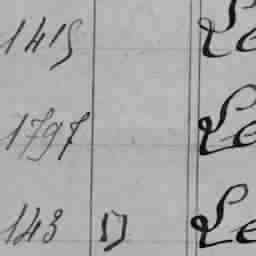 1415 Le
1797 Le
143 D Le